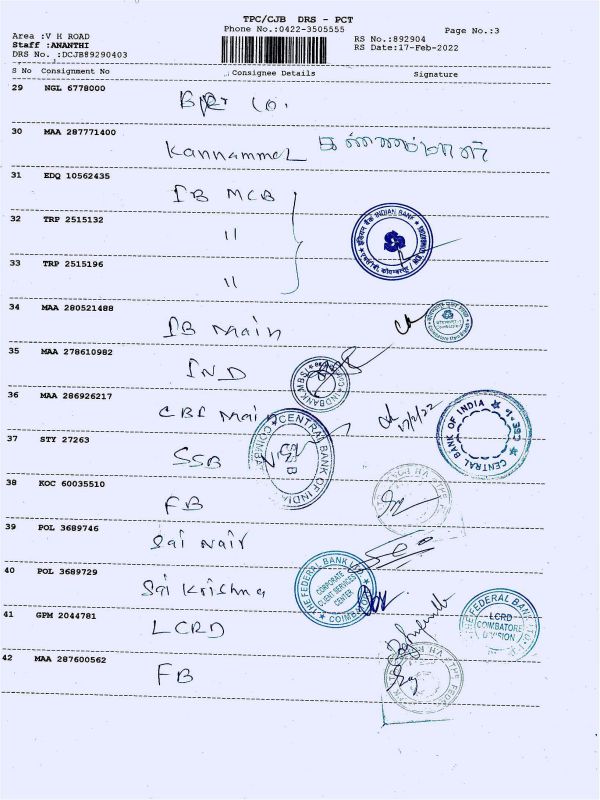 TPC/CJB DRS - PCT
Phone No.:0422-3505555
Page No.:3
Area :V H ROAD
Staff :ANANTHI
DRS No. :DCJB89290403
RS No.:892904
RS Date:17-Feb-2022
S No Consignment No Consignee Details Signature
29 NGL 6778000
30 MAA 287771400
Kannammal கண்ணம்மாள்
31 EDQ 10562435
IB MCB
32 TRP 2515132
"
INDIAN BANK
33 TRP 2515196
"
34 MAA 280521488
IB Main
35 MAA 278610982
IND
36 MAA 286926217
CBI Main
17/2/22
CENTRAL BANK OF INDIA
37 STY 27263
SSB
CENTRAL BANK OF INDIA
38 KOC 60035510
FB
39 POL 3689746
Sai Nair
40 POL 3689729
Sai Krishna
THE FEDERAL BANK
CORPORATE
CLIENT SERVICES
CENTER
COIMBATORE
41 GPM 2044781
LCRD
THE FEDERAL BANK
LCRD
COIMBATORE
DIVISION
42 MAA 287600562
FB